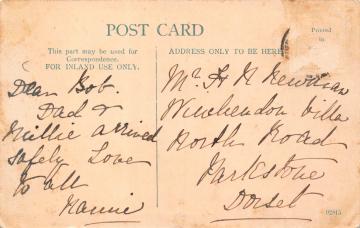 POST CARD
This part may be used for
Correspondence.
FOR INLAND USE ONLY.
ADDRESS ONLY TO BE HERE
Printed
in
Dear Bob.
Dad &
Millie arrived
safely Love
to all
Mr. H Newman
Villa
North Road
Parkstone
Dorset